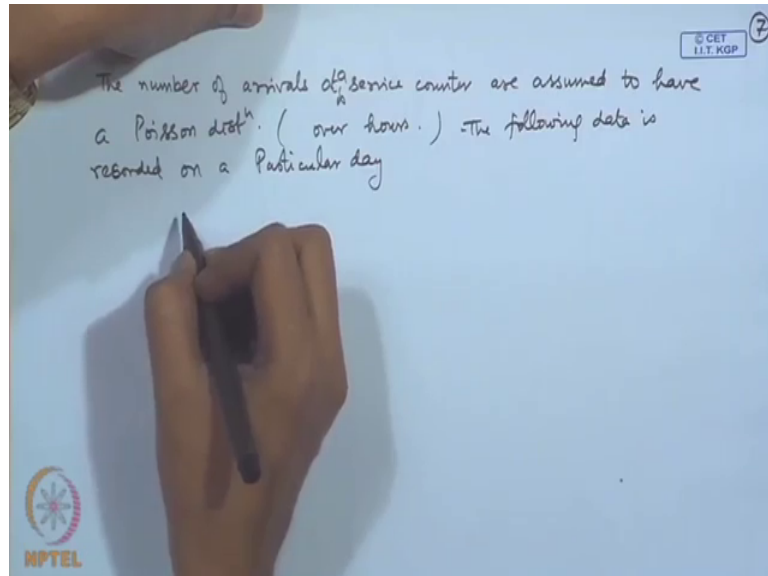 7
© CET
I.I.T. KGP
The number of arrivals at a service counter are assumed to have
a Poisson distⁿ. ( over hours. ) The following data is
recorded on a Particular day
NPTEL